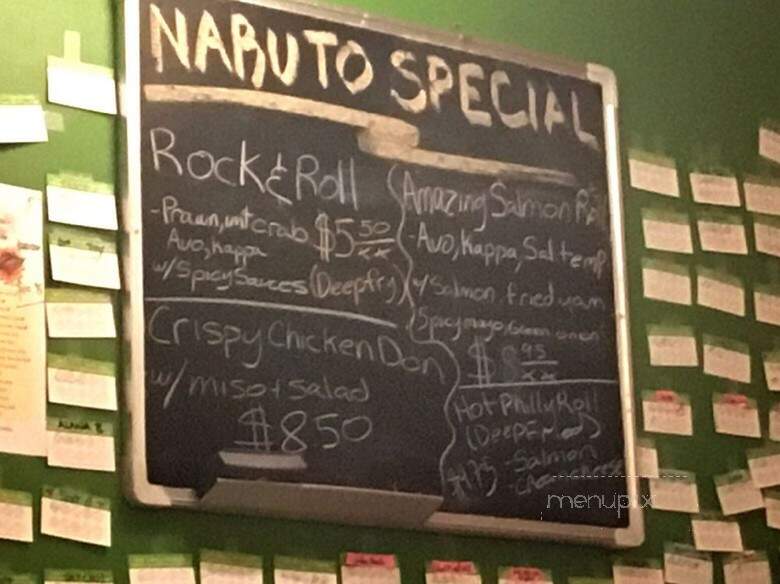 NARUTO SPECIAL
Rock & Roll
- Prawn, imt crab $5 50
Avo, Kappa
w/ Spicy Sauces (Deepfry)
Crispy Chicken Don
w/ miso + Salad
$8 50
Amazing Salmon Roll
- Avo, Kappa, Sal temp
w/ Salmon, fried yam
Spicy mayo, green onion
$ 95
Hot Philly Roll
(Deep Fried)
- Salmon
- Cream cheese
menupix